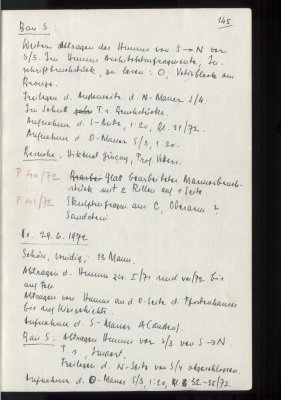 145
Bau S.
Weiteres Abtragen des Humus von S → N vor
S/3. Im Humus Architekturfragmente, In-
schriftbruchstück, zu lesen: O, Votivblech aus
Bronze.
Freilegen d. Außenseite d. N-Mauer S/4.
Im Schutt T.s. Bruchstücke
Aufnahme d. S-Mauer, 1:20, Bl. 31/72.
Aufnahme d. O-Mauer S/3, 1:20.
Besuche: Hikmet Gürçay, Prof. Vetters.
P 40/72 glatt bearbeitetes Marmorbruch-
stück mit 2 Rillen auf 1 Seite.
P 41/72 Skulpturfragm. aus C, Oberarm?
Sandstein.
Do. 29.6.1972
Schön, windig, 13 Mann.
Abtragen d. Humus zur I/71 und vor/72 bis
Abtragen von Humus an d O-Seite d. Pfostenhauses
bis auf Wasserschichte.
Aufnahme d. S-Mauer A
Bau S: Abtragen Humus vor 2/3 von S → N.
T.s.
Freilegen d. N-Seite von S/4 abgeschlossen.
Aufnahme d. O-Mauer S/3, 1:20, 32-35/72.